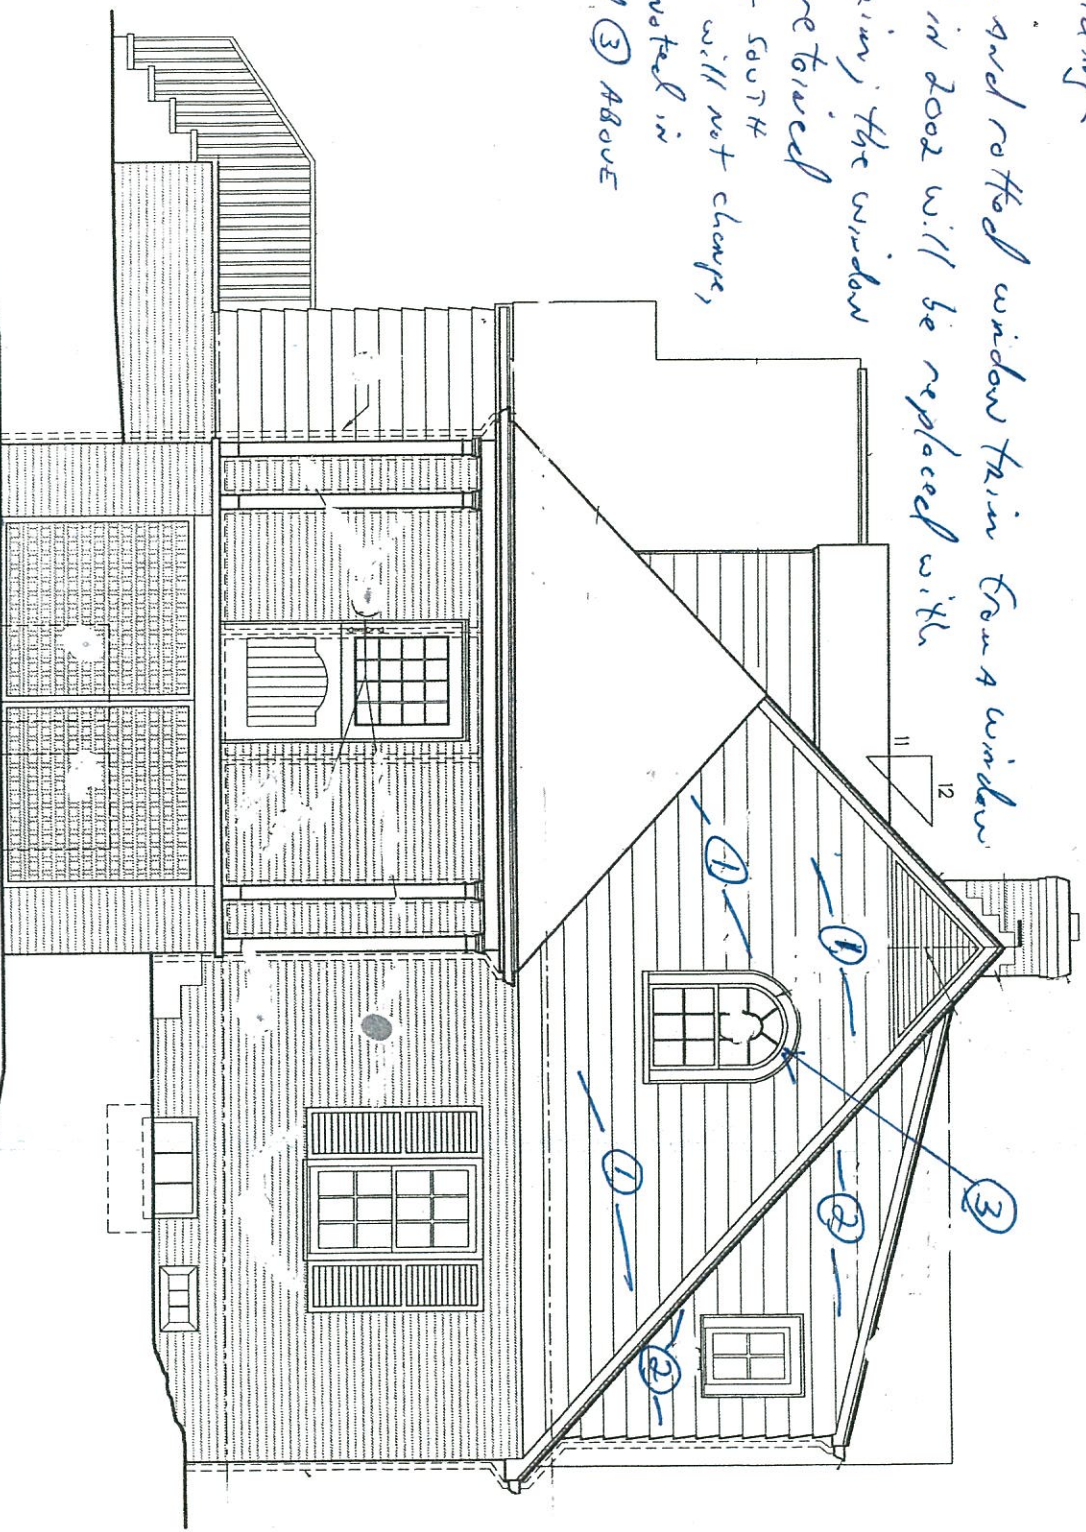 And rotted window trim from A window
in 2002 will be replaced with
the window
retained
- SOUTH
will not change,
noted in
③ ABOVE
11
12
①
①
①
②
②
③